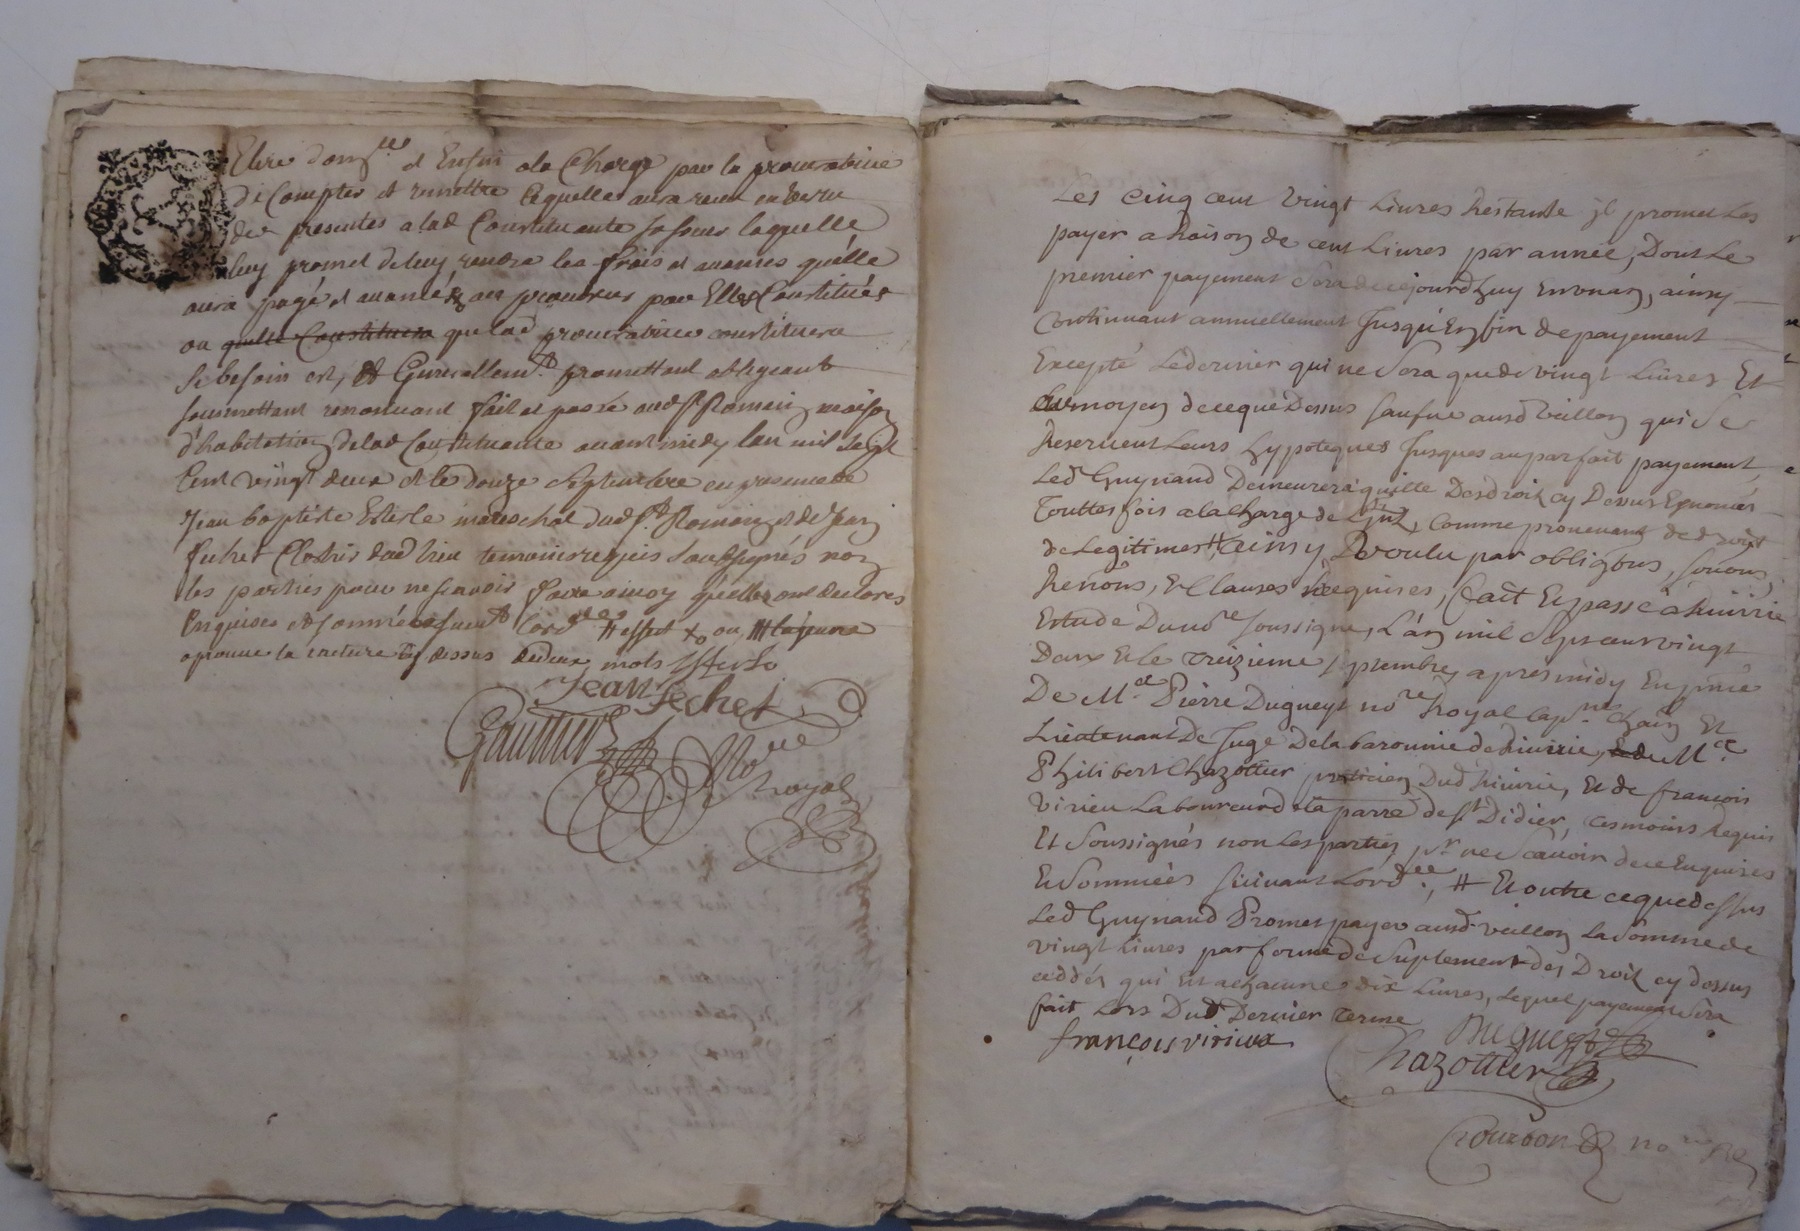 Elire domlle et Enfin a la Charge par la procuratrice
de Compter et remettre lequelle aura receu en vertu
des presentes a lad Constituante sa soeur laquelle
luy promet de luy rendre les frais et avances quelle
aura payé et avancé aux procureurs par Elle Constitués
ou quelle Constituera que lad procuratrice constituera
si besoin est, Et Generallemt promettant obligeant
soumettant renonceant fait et passé aud St Romain maison
d'habitation de lad Constituante avant midy lan mil sept
Cent vingt deux et le douze Septembre en presence de
Jean baptiste Esterle mareschal dud St Romain et de Jean
fechet Clodris dud lieu temoins requis soussignés non
les parties pour ne scavoir faire a moy quelles ont declarés
Enquises et sommées suivt lordce # effect ou # la jeune
aprouve la rature cy dessus de deux mots
Jean fechet
Gautier Nore
royal
Les cinq cent vingt Livres Restante jl promet Les
payer a Raison de cent Livres par année, Dont Le
premier payement Sera de cejourdhuy En un an, ainsy
Continuant annuellement Jusqu'En fin de payement
Excepté Le dernier qui ne Sera que de vingt Livres Et
au moyen de ce que Dessus sauf ausd veillon qui Se
Reservent Leurs hypoteques Jusques au parfait payement
Led Guynand Demeurera quitte Des droit cy Devant Enoncés
Touttes fois a la charge de , Comme provenant de droit
de Legitimes # ainsy De voulu par obligons, soumons,
Renons, Et Clauses Requises, fait Et passé a Rivirie
Estude Du nore soussigné, L'an mil Sept cent vingt
Deux Et le treizieme septembre apres midy En pnce
De Me Pierre Dugueyt nore Royal capne chain Et
Lieutenant De Juge De la baronnie de Rivirie, et de Me
Philibert Chazottier praticien Dud Rivirie, Et de francois
virieu Laboureur de la parre de St Didier, tesmoins Requis
Et Soussignés non Les parties pr ne Scavoir de ce Enquises
Et Sommées suivant Lordce, # Et outre ce que dessus
Led Guynand Promet payer ausd veillon La Somme de
vingt Livres par forme de Suplement des Droit cy dessus
ceddés qui Est a chacune dix Livres, Lequel payement Sera
fait Lors Dud Dernier terme
françois virieux Dugueyt
Chazottier
nore